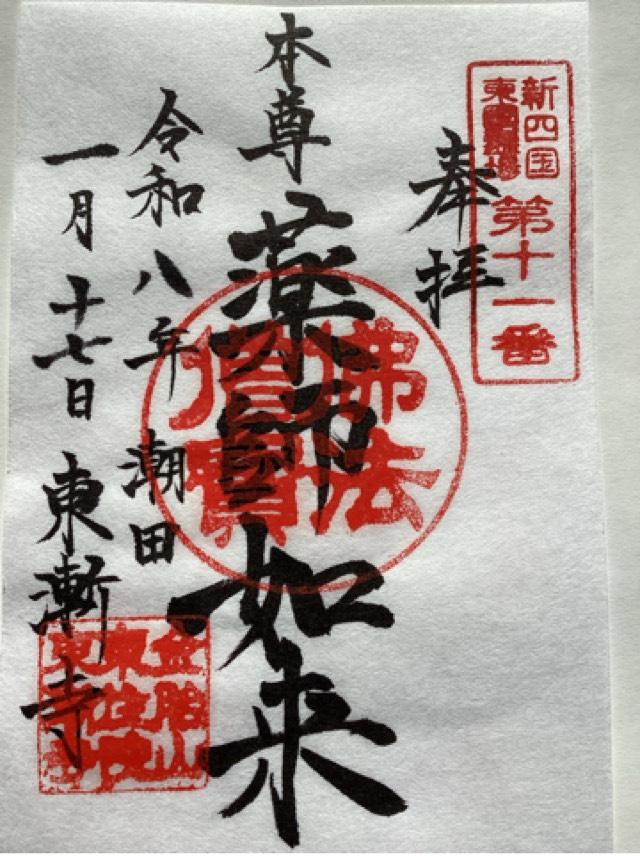 新四国
東
第十一番
奉拝
本尊 薬師如来
佛法
僧寶
令和八年 潮田
一月十七日 東漸寺